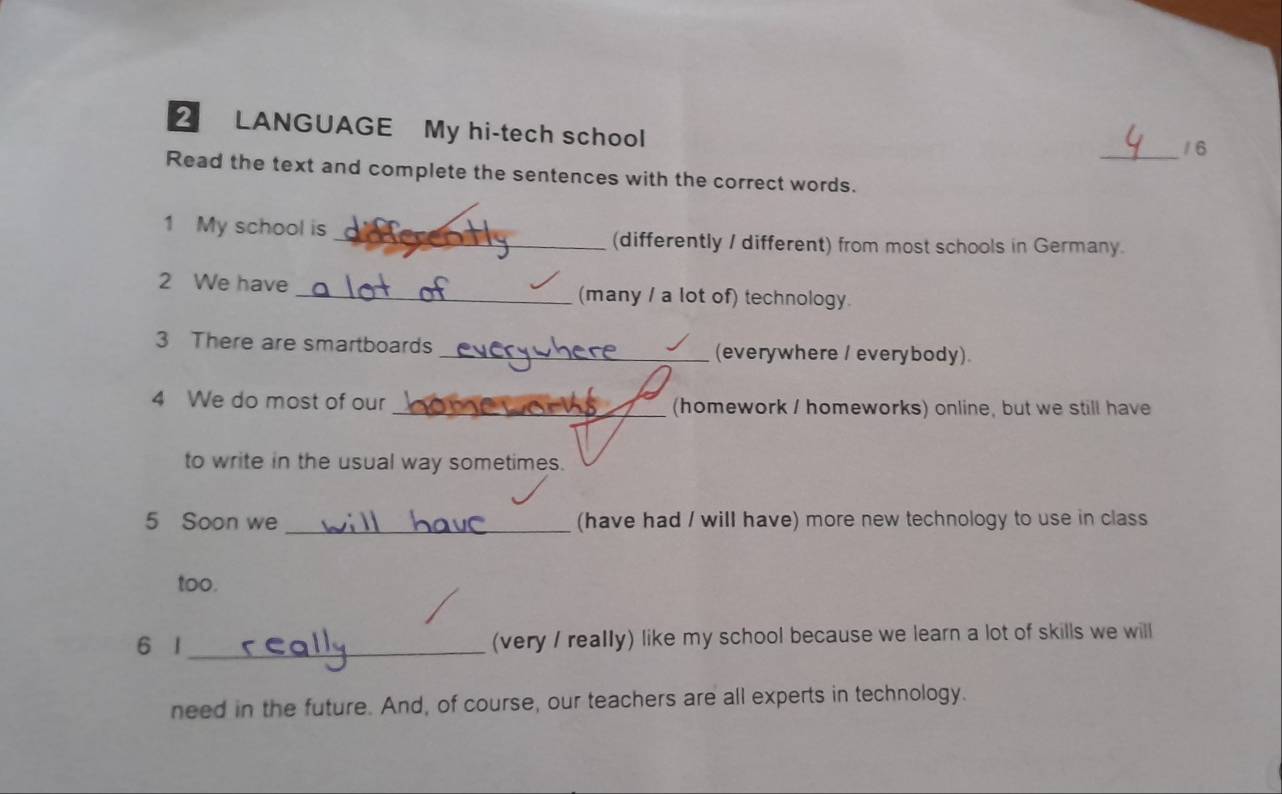 2 LANGUAGE My hi-tech school
4 / 6
Read the text and complete the sentences with the correct words.
1 My school is differently (differently / different) from most schools in Germany.
2 We have a lot of (many / a lot of) technology.
3 There are smartboards everywhere (everywhere / everybody).
4 We do most of our homeworks (homework / homeworks) online, but we still have
to write in the usual way sometimes.
5 Soon we will have (have had / will have) more new technology to use in class
too.
6 I really (very / really) like my school because we learn a lot of skills we will
need in the future. And, of course, our teachers are all experts in technology.